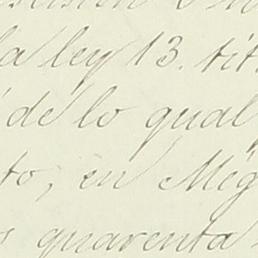 la ley 13. tit
de lo qual
to, en Még
quarenta